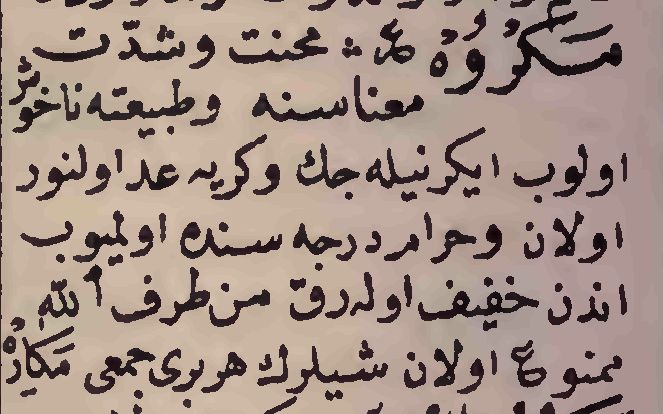 مَكْرُوهْ ع : محنت وشدّت
معناسنه وطبيعته ناخوش
اولوب ايكرنيله جك وكريه عد اولنور
اولان وحرام درجه سنده اولميوب
اندن خفيف اوله رق من طرف الله
ممنوع اولان شيلرك هر برى جمعى مَكَارِهْ